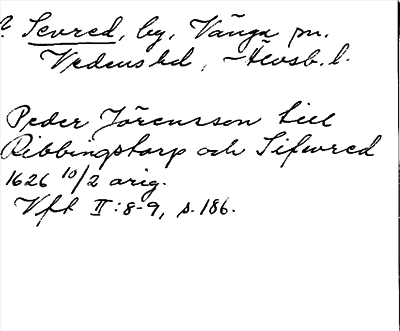 ? Sevred, by, Vånga sn.
Vedens hd, Älvsb. l.
Peder Jörensson till
Ribbingstorp och Sifvered
1626 10/2 orig.
Vft II:8-9, s. 186.